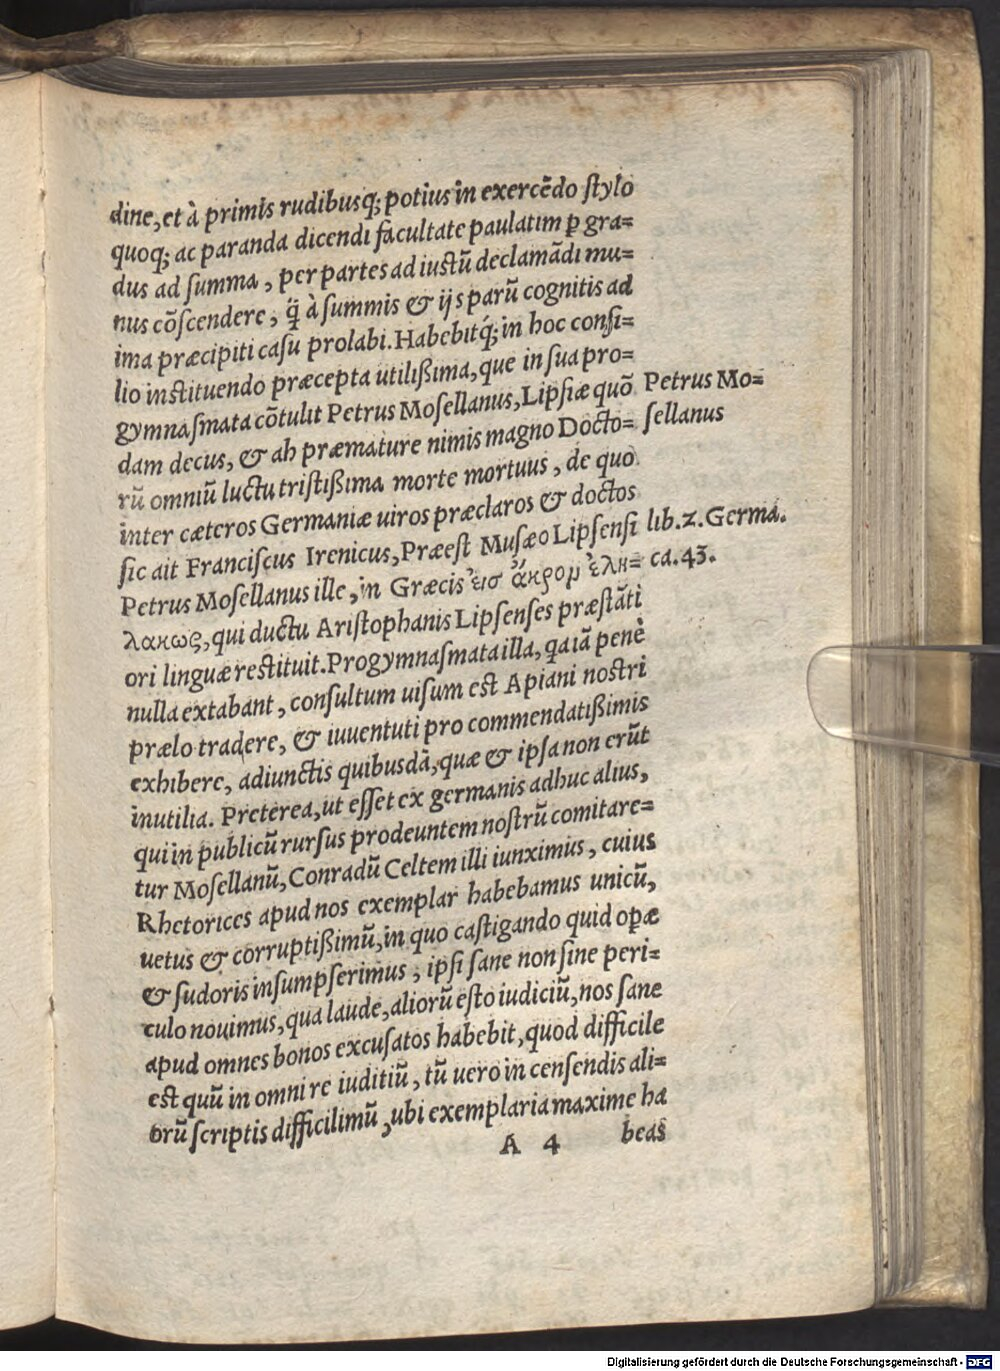 dine, et à primis rudibusq; potius in exercẽdo ſtylo
quoq; ac paranda dicendi facultate paulatim ꝑ gra=
dus ad ſumma, per partes ad iuſtũ declamãdi mu=
nus cõſcendere, q̃ à ſummis & ijs parũ cognitis ad
ima præcipiti caſu prolabi. Habebitq́; in hoc conſi=
lio inſtituendo præcepta utilißima, que in ſua pro=
gymnaſmata cõtulit Petrus Moſellanus, Lipſiæ quõ
Petrus Mo=
dam decus, & ah præmature nimis magno Docto=
ſellanus
rũ omniũ luctu triſtißima morte mortuus, de quo
inter cæteros Germaniæ uiros præclaros & doctos
ſic ait Franciſcus Irenicus, Præeſt Muſæo Lipſenſi
lib. 2. Germa.
Petrus Moſellanus ille, in Græcis εἰσ ἄκρομ ἐλη=
ca. 43.
λακως, qui ductu Ariſtophanis Lipſenſes præſtãti
ori linguæ reſtituit. Progymnaſmata illa, qa iã penè
nulla extabant, conſultum uiſum est Apiani noſtri
prælo tradere, & iuuentuti pro commendatißimis
exhibere, adiunctis quibusdã, quæ & ipſa non erũt
inutilia. Preterea, ut eſſet ex germanis adhuc alius,
qui in publicũ rurſus prodeuntem noſtrũ comitare=
tur Moſellanũ, Conradũ Celtem illi iunximus, cuius
Rhetorices apud nos exemplar habebamus unicũ,
uetus & corruptißimũ, in quo caſtigando quid opæ
& ſudoris inſumpſerimus, ipſi ſane non ſine peri=
culo nouimus, qua laude, aliorũ eſto iudiciũ, nos ſane
apud omnes bonos excuſatos habebit, quod difficile
eſt quũ in omni re iuditiũ, tũ uero in cenſendis ali=
orũ ſcriptis difficilimũ, ubi exemplaria maxime ha
A 4 beas